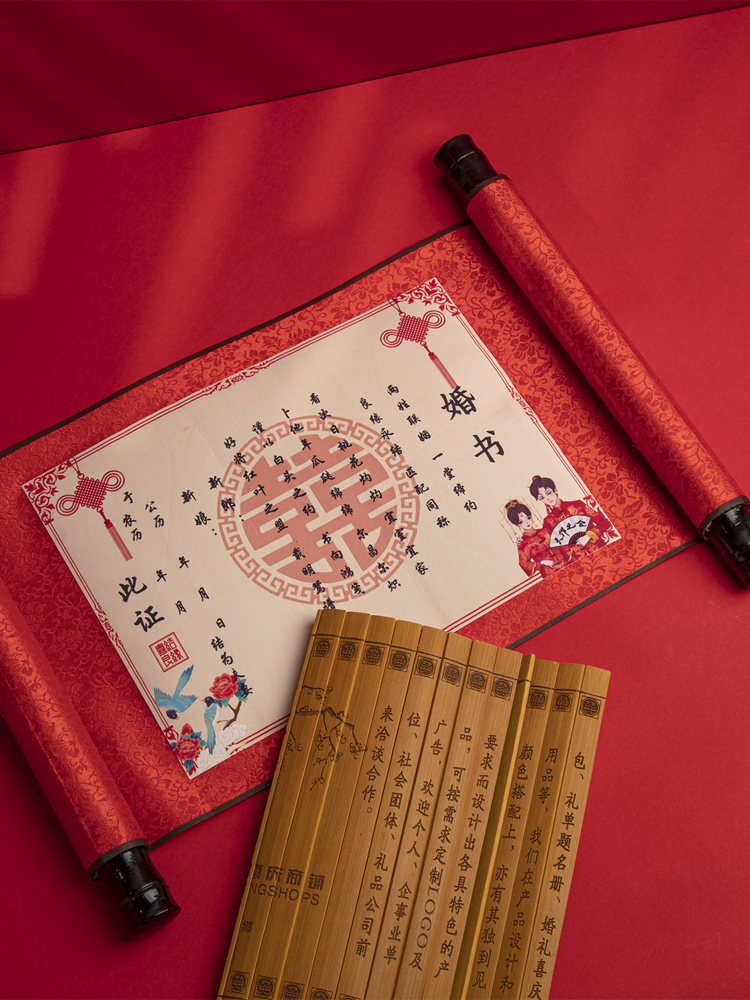 婚书
两姓联姻 一堂缔约
良缘永结 匹配同称
看此日桃花灼灼 宜室宜家
卜他年瓜瓞绵绵 尔昌尔炽
谨以白头之约 书向鸿笺
好将红叶之盟 载明鸳谱
新郎：
新娘：
公历 年 月 日结为夫妻
于农历 年 月
此证
天作之合
包、礼单题名册、婚礼喜庆
用品等，我们在产品设计和
颜色搭配上，亦有其独到见
要求而设计出各具特色的产
品，可按需求定制LOGO及
广告，欢迎个人、企事业单
位、社会团体、礼品公司前
来洽谈合作。
商铺
NGSHOPS